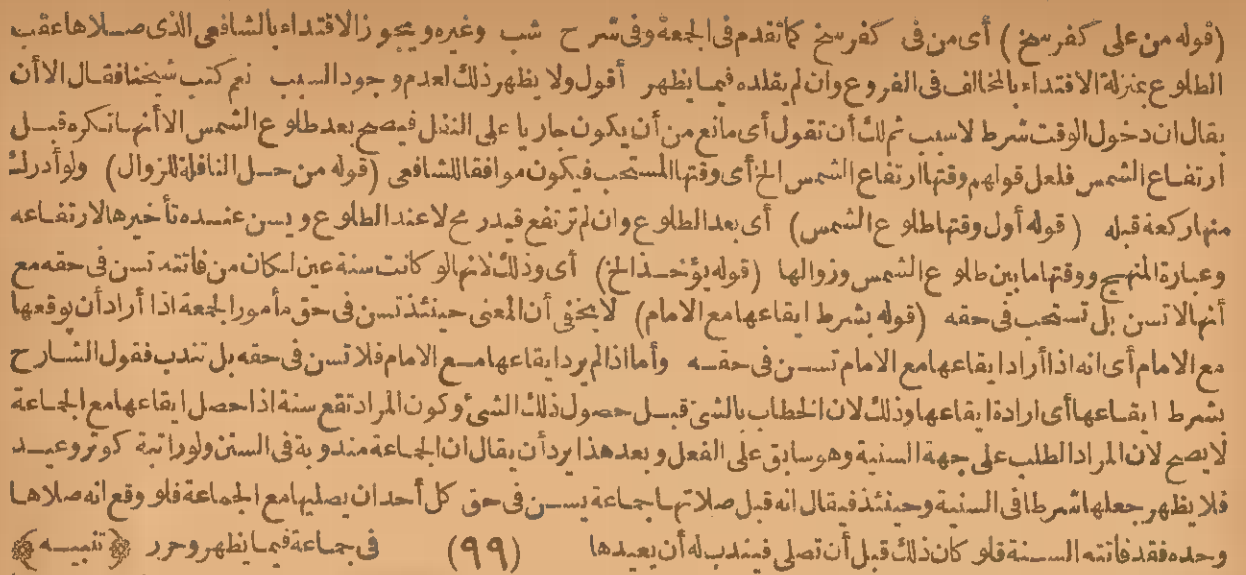 (قوله من على كفرسخ) أى من فى كفرسخ كما تقدم فى الجمعة وفى شرح شب وغيره ويجوز الاقتداء بالشافعى الذى صلاها عقب
الطلوع بمنزلة الاقتداء بالمخالف فى الفروع وان لم يقلده فيما يظهر أقول ولا يظهر ذلك لعدم وجود السبب نعم كتب شيخنا فقال الا أن
يقال ان دخول الوقت شرط لا سبب ثم لك أن تقول أى مانع من أن يكون جاريا على النفل فيصح بعد طلوع الشمس الا أنها تكره قبل
ارتفاع الشمس فلعل قولهم وقتها ارتفاع الشمس الخ أى وقتها المستحب فيكون موافقا للشافعى (قوله من حل النافلة للزوال) ولو أدرك
منها ركعة قبله (قوله أول وقتها طلوع الشمس) أى بعد الطلوع وان لم ترتفع قيد رمح لا عند الطلوع ويسن عنده تأخيرها لارتفاعه
وعبارة المنهج ووقتها ما بين طلوع الشمس وزوالها (قوله يؤخذ الخ) أى وذلك لانها لو كانت سنة عين لكان من فاتته تسن فى حقه مع
أنها لا تسن بل تستحب فى حقه (قوله بشرط ايقاعها مع الامام) لا يخفى أن المعنى حينئذ تسن فى حق مأمور الجمعة اذا أراد أن يوقعها
مع الامام أى انه اذا أراد ايقاعها مع الامام تسن فى حقه وأما اذا لم يرد ايقاعها مع الامام فلا تسن فى حقه بل تندب فقول الشارح
بشرط ايقاعها أى ارادة ايقاعها وذلك لان الخطاب بالشئ قبل حصول ذلك الشئ وكون المراد تقع سنة اذا حصل ايقاعها مع الجماعة
لا يصح لان المراد الطلب على جهة السنية وهو سابق على الفعل وبعد هذا يرد أن يقال ان الجماعة مندوبة فى السنن ولو راتبة كوتر وعيد
فلا يظهر جعلها شرطا فى السنية وحينئذ فيقال انه قبل صلاتها جماعة يسن فى حق كل أحد ان يصليها مع الجماعة فلو وقع انه صلاها
وحده فقد فاتته السنة فلو كان ذلك قبل أن تصلى فيندب له أن يعيدها (٩٩) فى جماعة فيما يظهر وحرر ﴿تنبيه﴾